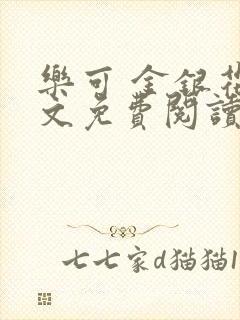 樂可 金銀花
文免費閱讀
七七家d猫猫1